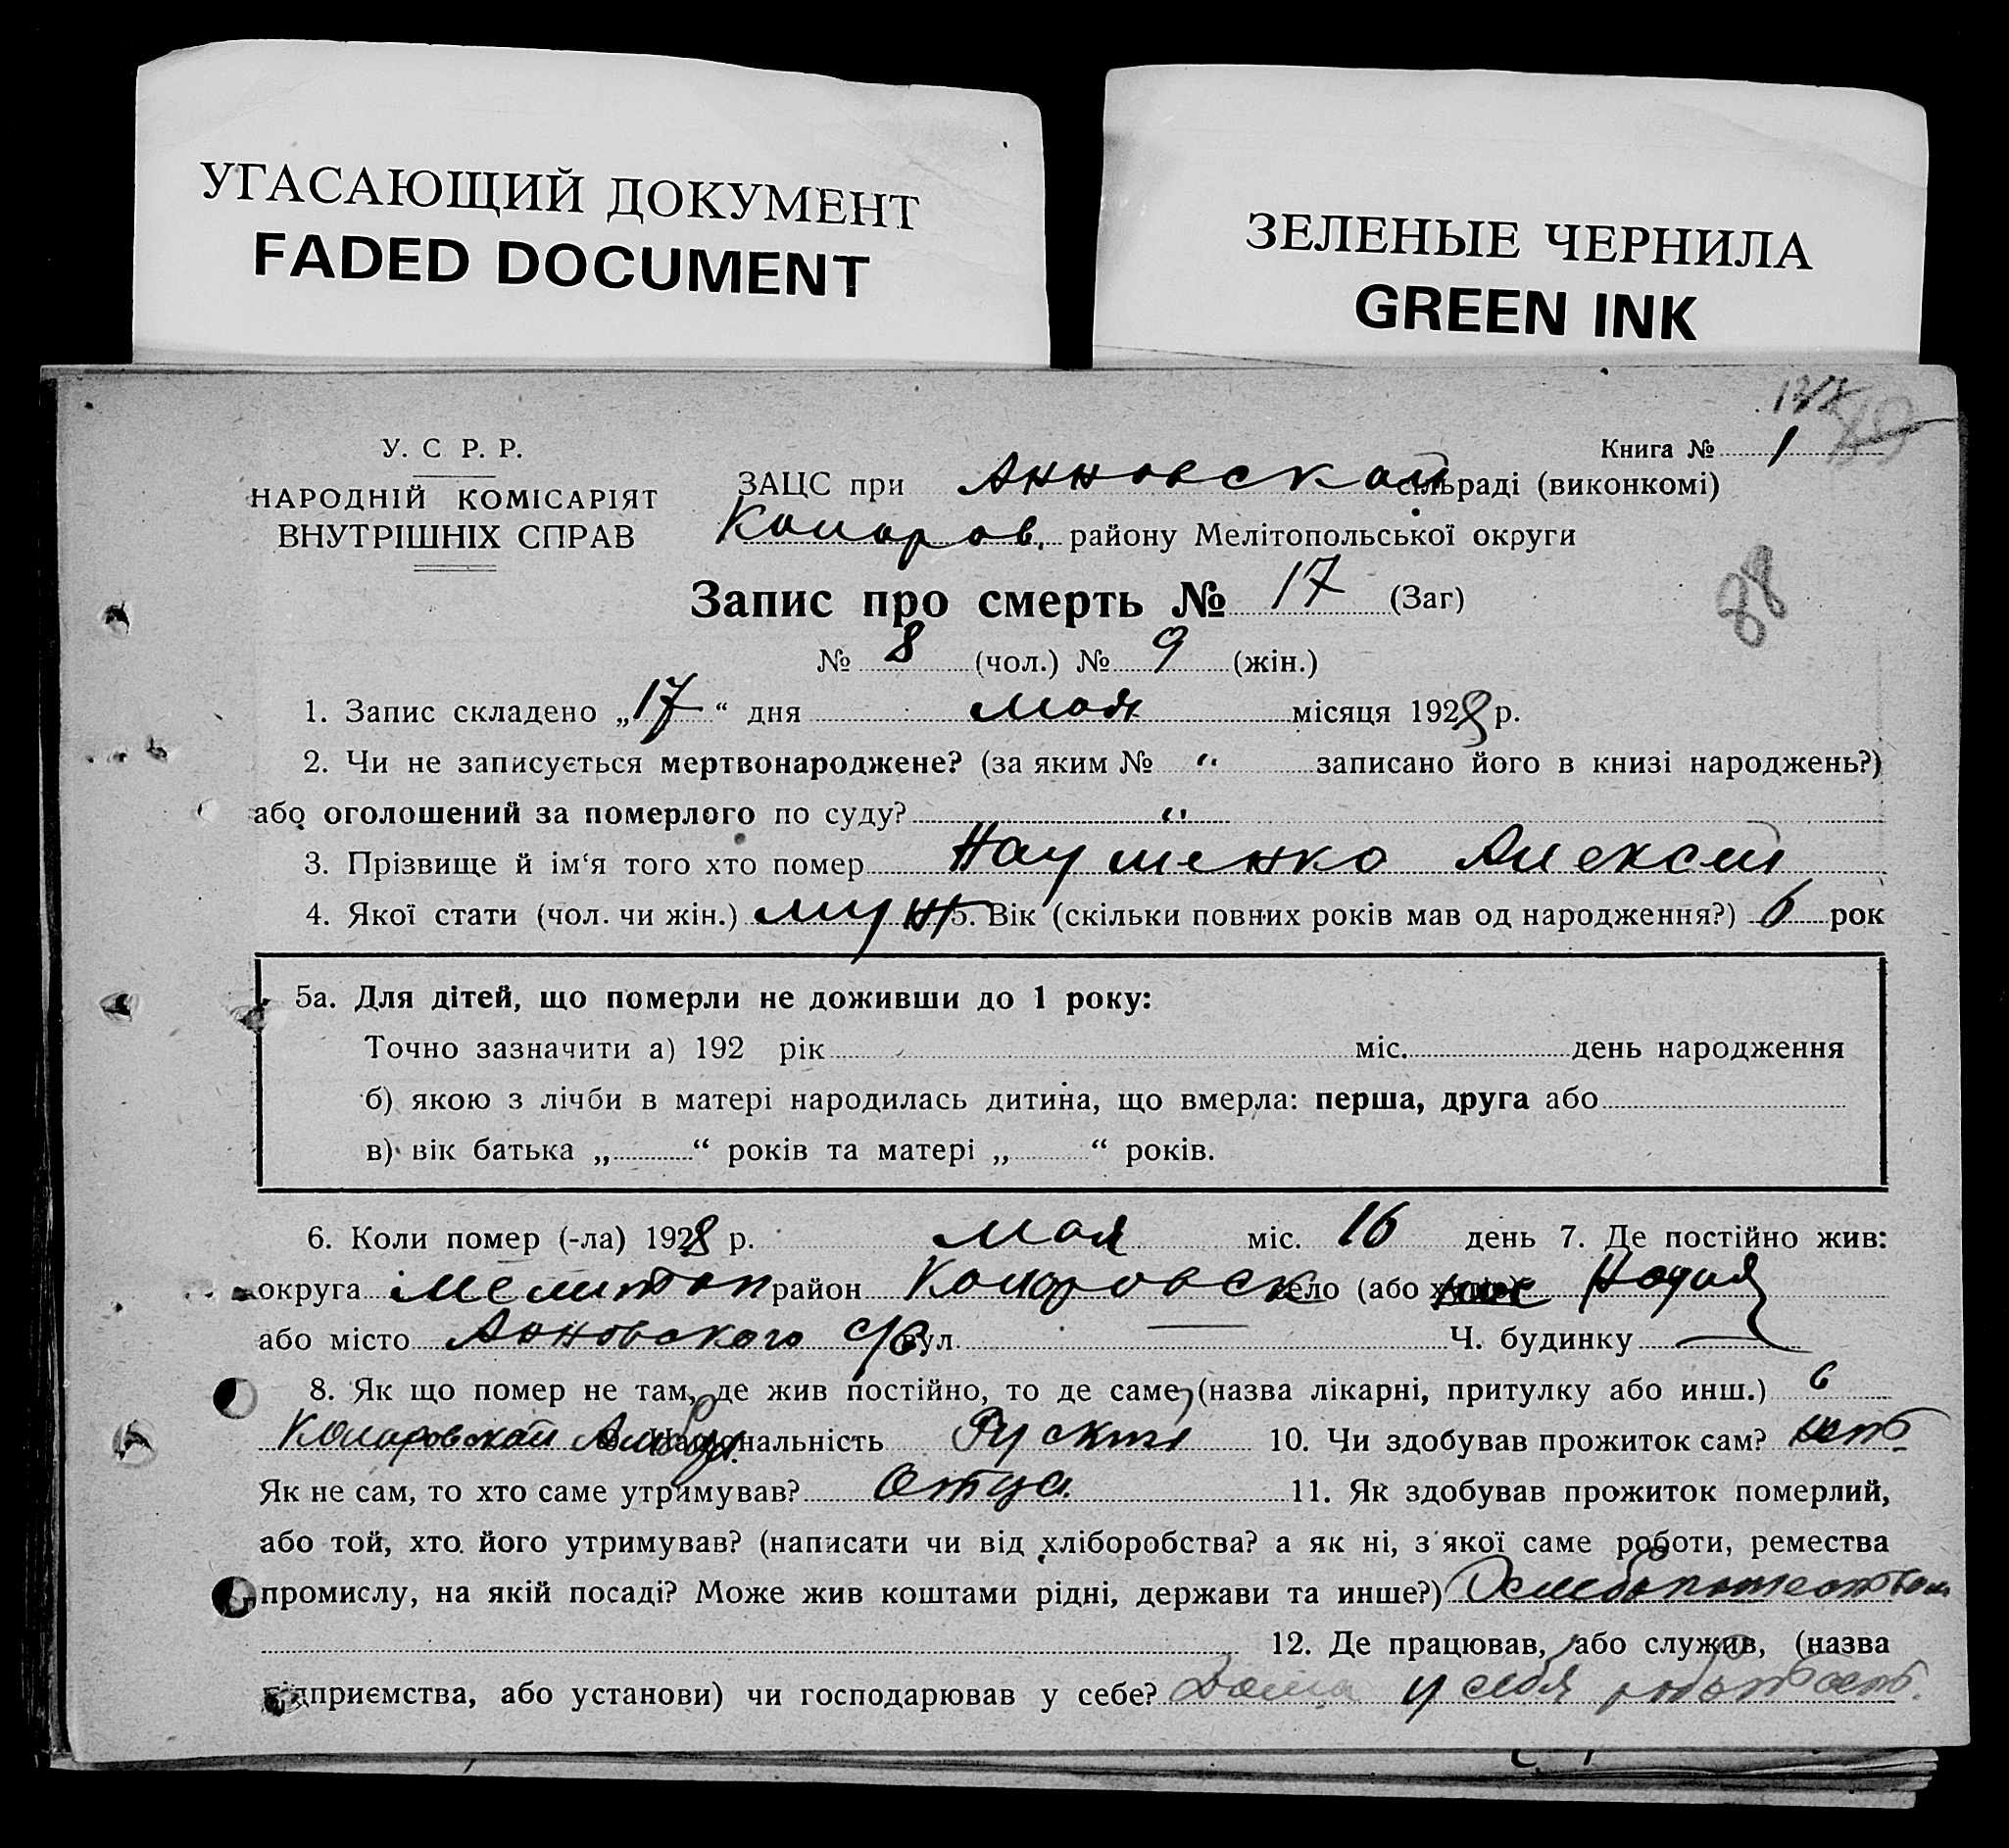 УГАСАЮЩИЙ ДОКУМЕНТ
FADED DOCUMENT
ЗЕЛЕНЫЕ ЧЕРНИЛА
GREEN INK
У. С Р. Р.
НАРОДНІЙ КОМІСАРІЯТ
ВНУТРІШНІХ СПРАВ
Книга № 1
ЗАЦС при Анновской сільраді (виконкомі)
Комаров. району Мелітопольської округи
Запис про смерть № 17 (Заг)
88
№ 8 (чол.) № 9 (жін.)
1. Запис складено „17“ дня мая місяця 1928 р.
2. Чи не записується мертвонароджене? (за яким № " записано його в книзі народжень?)
або оголошений за померлого по суду? "
3. Прізвище й ім‘я того хто помер Наушенко Алексей
4. Якої стати (чол. чи жін.) муж 5. Вік (скільки повних років мав од народження?) 6 рок
5а. Для дітей, що померли не доживши до 1 року:
Точно зазначити а) 192 рік міс. день народження
б) якою з лічби в матері народилась дитина, що вмерла: перша, друга або
в) вік батька „ “ років та матері „ “ років.
6. Коли помер (-ла) 1928 р. мая міс. 16 день 7. Де постійно жив:
округа Мелитоп район Комаровск село (або хутір)
або місто Анновского с/с вул. — Ч. будинку —
8. Як що помер не там, де жив постійно, то де саме, (назва лікарні, притулку або инш.) в
Комаровской Амбул. 9. Національність Руский 10. Чи здобував прожиток сам? нет
Як не сам, то хто саме утримував? Отца 11. Як здобував прожиток померлий,
або той, хто його утримував? (написати чи від хліборобства? а як ні, з якої саме роботи, ремества
промислу, на якій посаді? Може жив коштами рідні, держави та инше?)
12. Де працював, або служив, (назва
підприємства, або установи) чи господарював у себе? Дома у себя